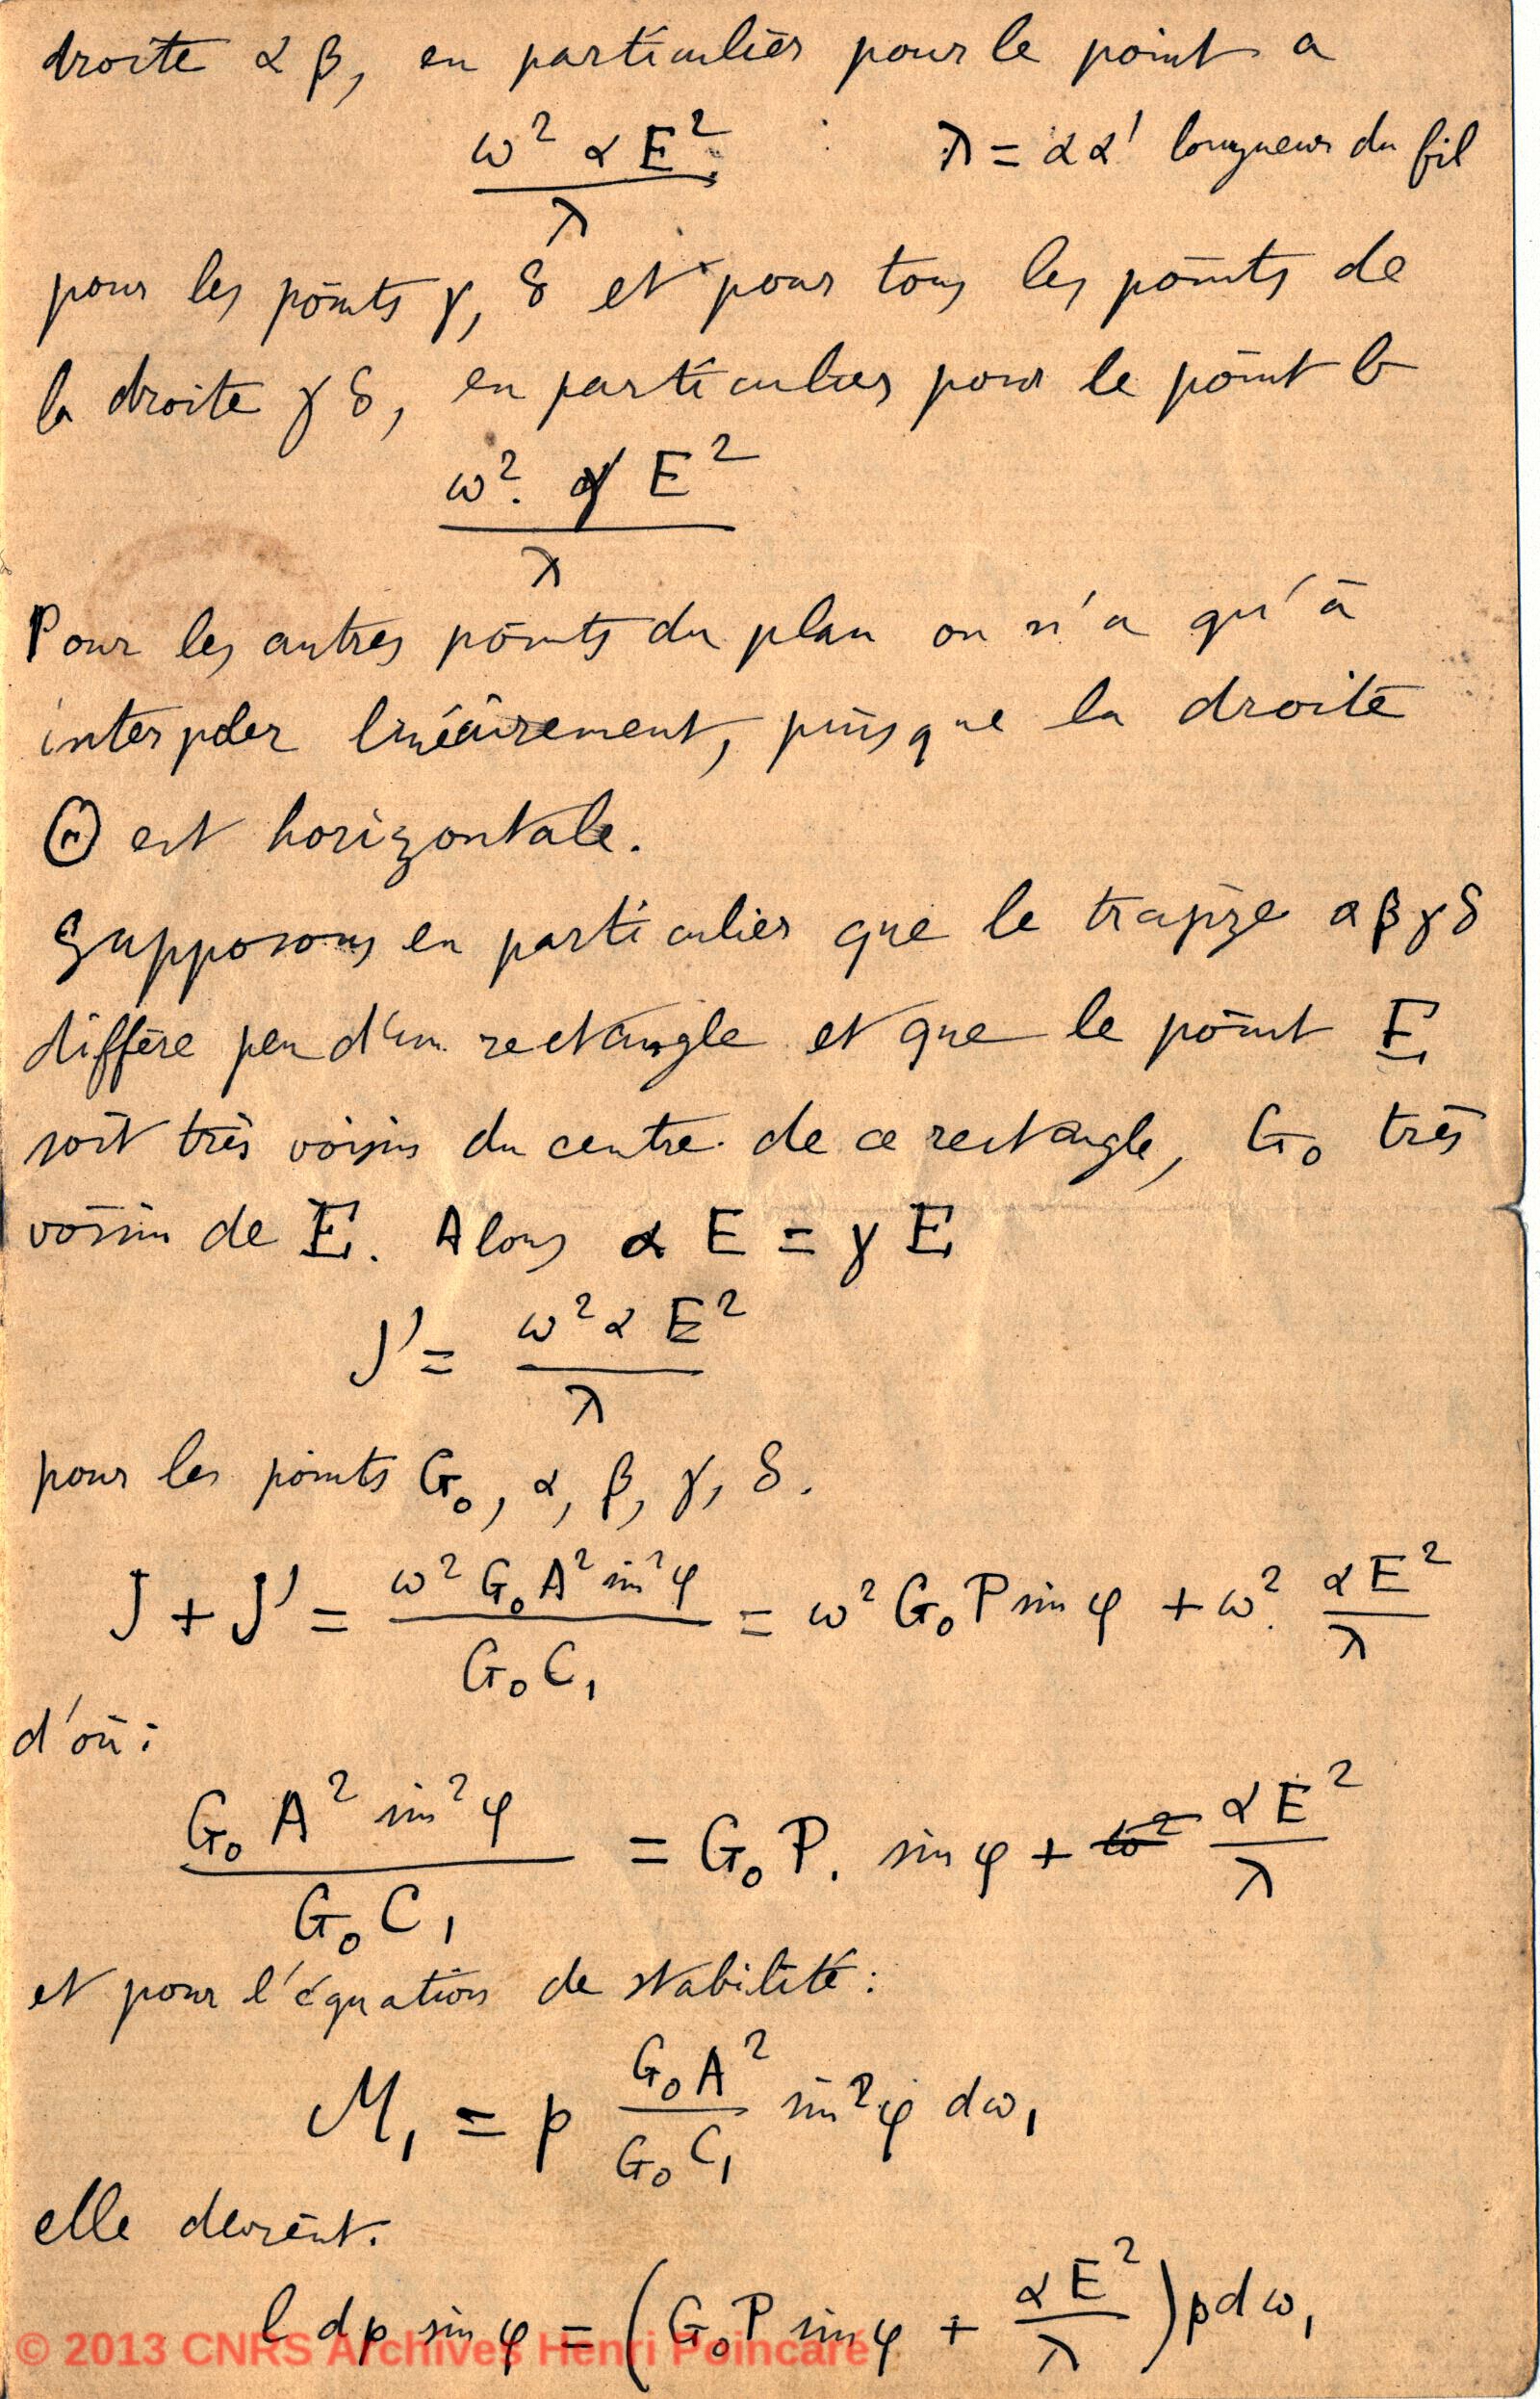 droite α β, en particulier pour le point a
ω² α E² / λ     λ = α α' longueur du fil
pour les points γ, δ et pour tous les points de
la droite γ δ, en particulier pour le point b
ω². γ E² / λ
Pour les autres points du plan on n'a qu'à
interpoler linéairement, puisque la droite
Θ est horizontale.
Supposons en particulier que le trapèze α β γ δ
diffère peu d'un rectangle et que le point E
soit très voisin du centre de ce rectangle, G₀ très
voisin de E. Alors α E = γ E
J' = ω² α E² / λ
pour les points G₀, α, β, γ, δ.
J + J' = ω² G₀A² sin²φ / G₀C₁ = ω² G₀P sin φ + ω². αE² / λ
d'où :
G₀A² sin²φ / G₀C₁ = G₀P. sin φ + ω² αE² / λ
et pour l'équation de stabilité :
M₁ = p G₀A² / G₀C₁ sin²φ dω₁
elle devient.
l dp sin φ = (G₀P sin φ + αE² / λ) p dω₁
© 2013 CNRS Archives Henri Poincaré